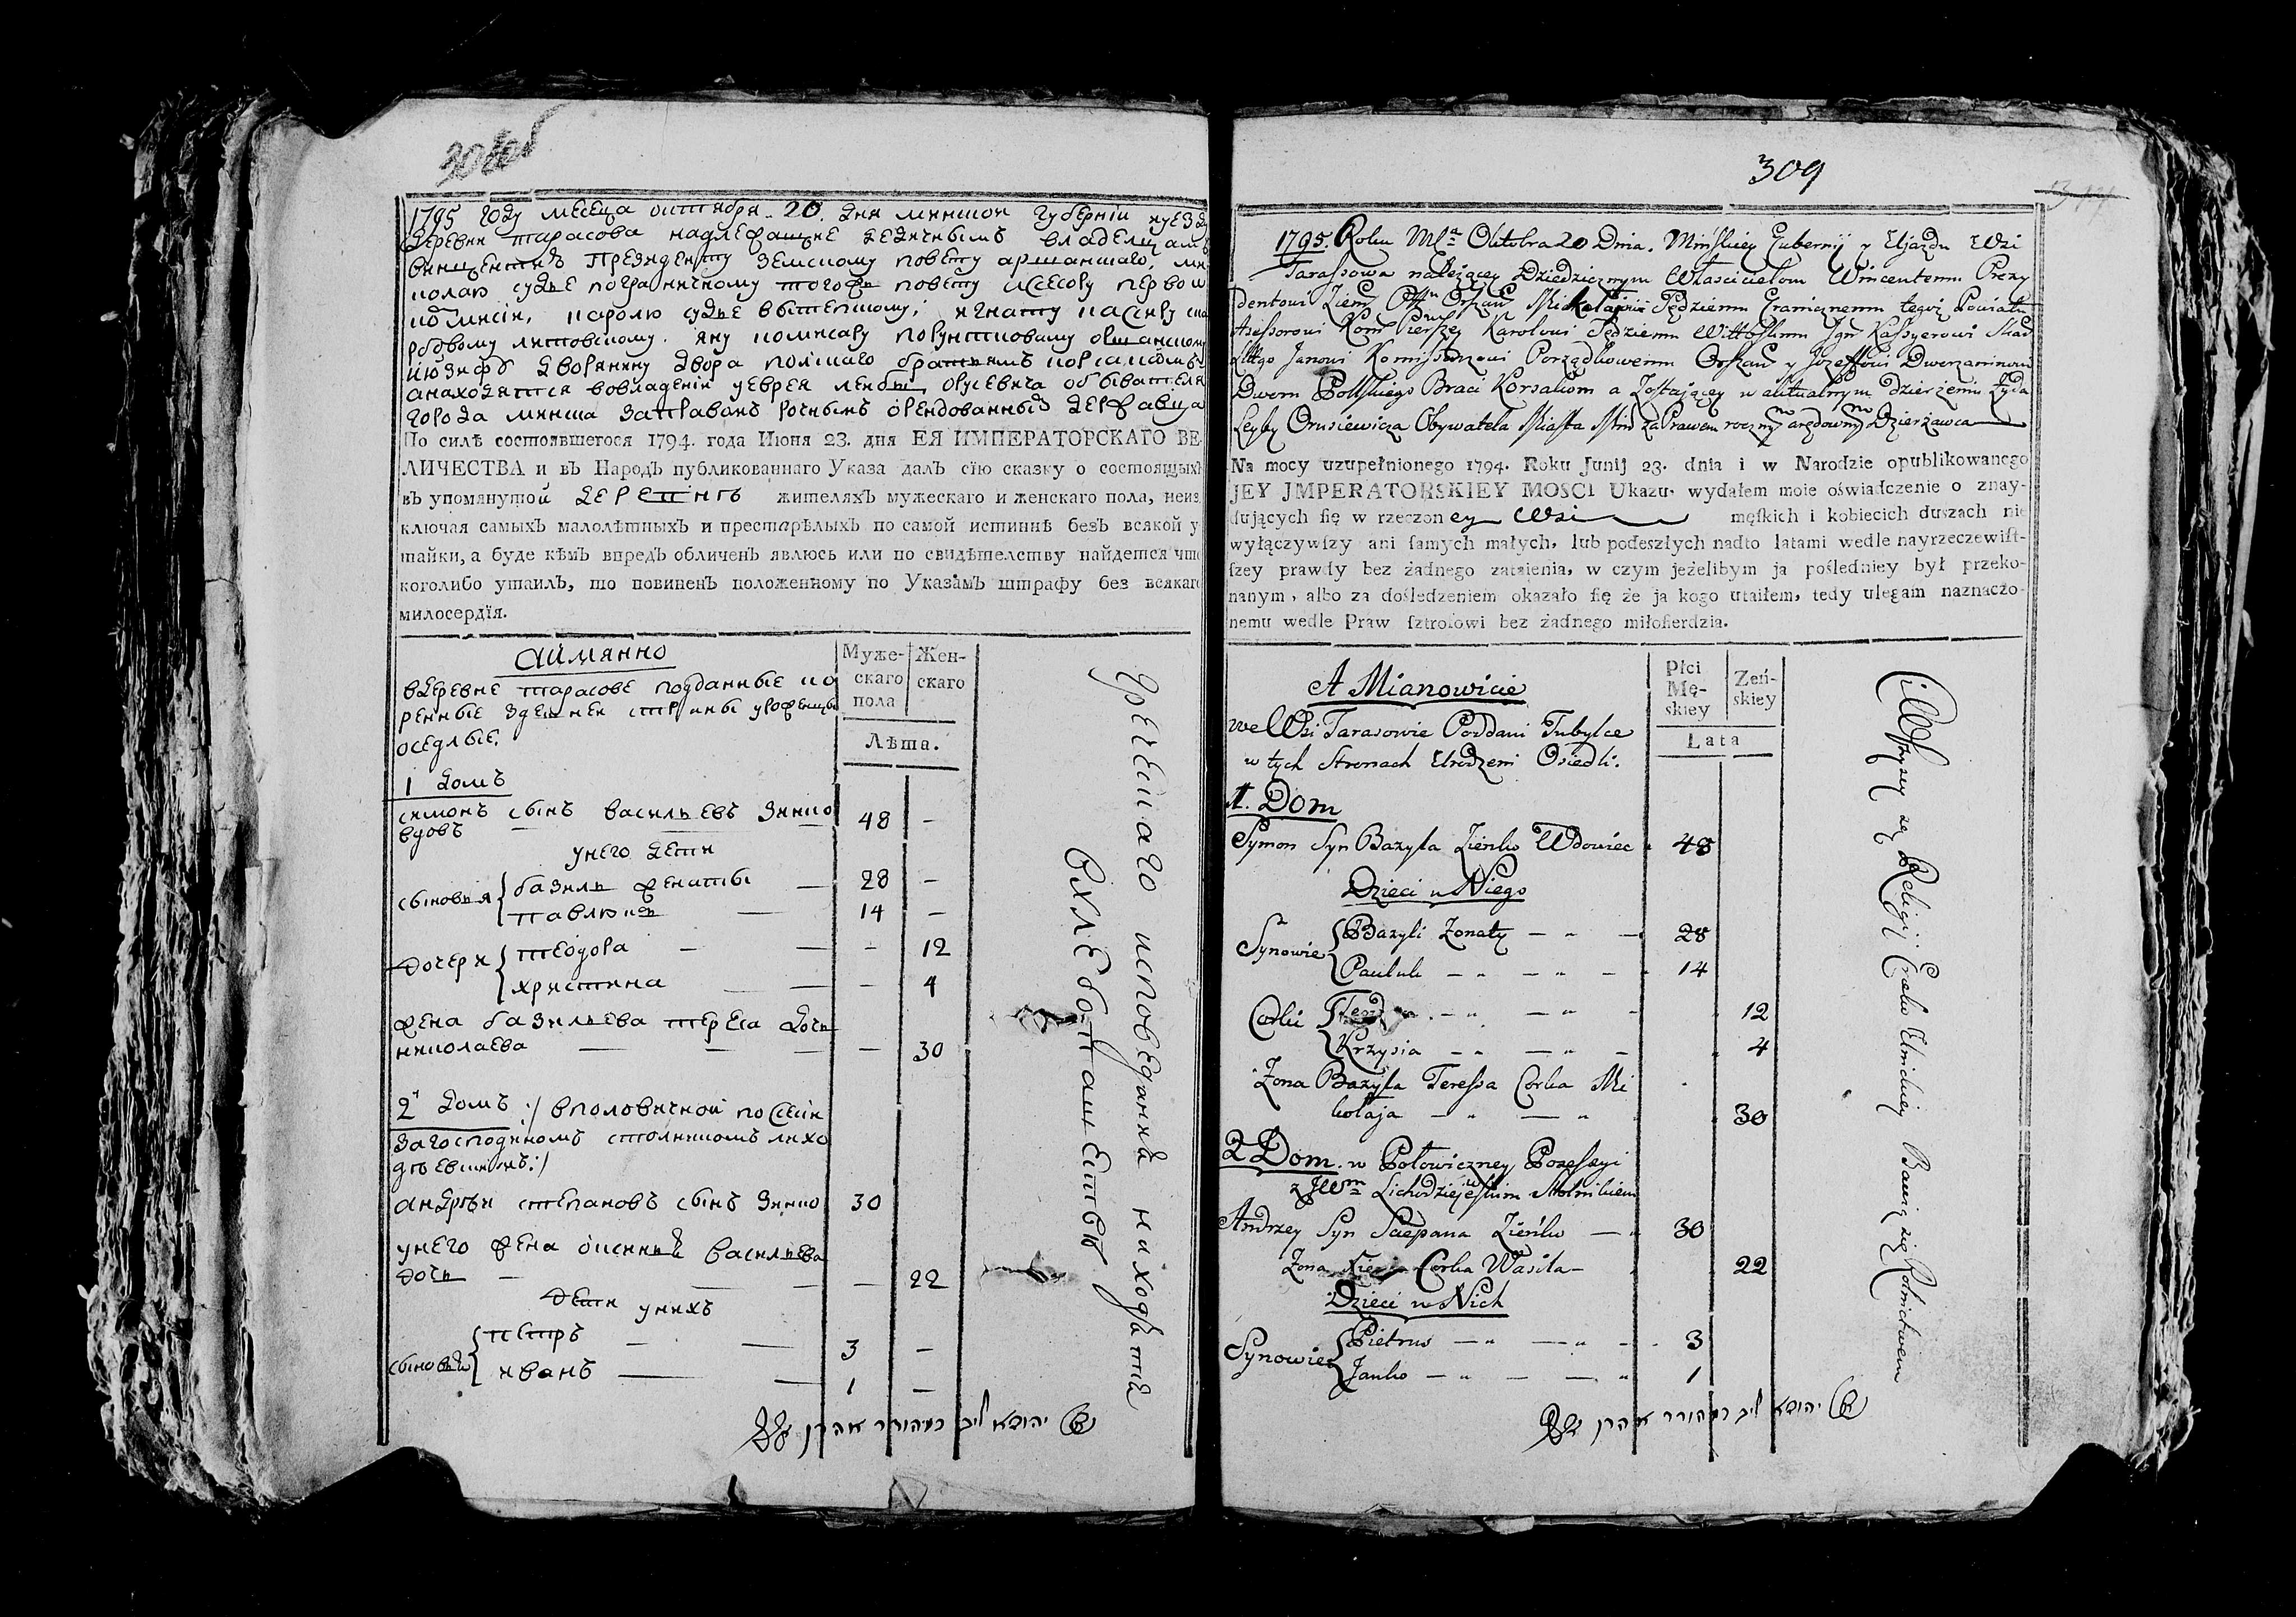 308об
1795 году месеца октября 20. дня минской губернїи иуезду
деревни тарасова надлежащие дедичнымъ владелцамъ
винцентию Президенту земскому повету аршанскаго, ми
колаю судье пограничному тогожъ повету иссесору первой
комисїи, каролю судье вытепскому, игнату касиеру ска
рбовому литовскому. яну комисару порунтковому оршанскому
июзифу дворянину двора полскаго братьямъ корсакомъ
анаходятся вовладенїи уеврея лейбы орусевича обывателя
города минска заправомъ рочнымъ орендованный державца
По силѣ состоявшегося 1794. года Июня 23. дня ЕЯ ИМПЕРАТОРСКАГО ВЕ-
ЛИЧЕСТВА и въ Народъ публикованнаго Указа далъ сїю сказку о состоящихъ
въ упомянутой деревни жителяхъ мужескаго и женскаго пола, неиз
ключая самыхъ малолѣтныхъ и престарѣлыхъ по самой истиннѣ безъ всякой у
тайки, а буде кѣмъ впредъ обличенъ явлюсь или по свидѣтелству найдется что
коголибо утаилъ, то повиненъ положенному по Указамъ штрафу без всякаго
милосердїя.
Аймянно
вдеревне тарасове подданные ко
ренные здешней страны уроженцы
оседлые.
Муже-
скаго
пола
Жен-
скаго
Лѣта.
1 домъ
симонъ сынъ васильевъ зинко
вдовъ — 48 —
унего дети
сыновья { базиль женаты — 28 —
павлюкъ — 14 —
дочери { теодора — — 12
христина — — 4
жена базильева тереса дочь
николаева — — — — 30
2й домъ :/ вполовичной посесїи
загосподиномъ столникомъ лихо
дїевскимъ:/
андрѣй степановъ сынъ зинко 30
унего жена васильева
дочь — — — 22
дети унихъ
сыновьй { петръ — — 3 —
иванъ — — 1 —
греческаго исповеданїя находятся
вхлебопашестве
יהודא ליב במהורר אהרן
309
1795. Roku Mca Oktobra 20 Dnia. Mińskiey Gubernij y Ujazdu Wsi
Tarassowa należącey Dziedzicznym Włascicielom Wincentemu Prezy
dentowi Ziem Pttu Orszań Mikołajowi Sędziemu Granicznemu tegoż Powiatu
Asessorowi Kom Pierszey Karolowi Sędziemu Wittebskmu Ign Kassyerowi Skar
Littgo Janowi Komissarzowi Porządkowemu Orszań y Jozeffowi Dworzaninowi
Dworu Polskiego Braci Korsakom a Zostającey w aktualnym dzierżeniu Żyda
Leyby Orusiewicza Obywatela Miasta Miń za Prawem rocznym arędownym Dzierżawca
Na mocy uzupełnionego 1794. Roku Junij 23. dnia i w Narodzie opublikowanego
JEY JMPERATORSKIEY MOSCI Ukazu, wydałem moie oświadczenie o znay-
duiących się w rzeczoney Wsi męskich i kobiecich duszach nie
wyłączywszy ani samych małych, lub podeszłych nadto latami wedle nayrzeczewist-
szey prawdy bez żadnego zataienia, w czym jeżelibym ja posledniey był przeko-
nanym, albo za dośledzeniem okazało się że ja kogo utaiłem, tedy ulegam naznaczo-
nemu wedle Praw sztrofowi bez żadnego miłosierdzia.
A Mianowicie
we Wsi Tarasowie Poddani Tubylce
w tych Stronach Urodzeni Osiedli.
Płci
Mę-
skiey
Żeń-
skiey
Lata
1. Dom
Symon Syn Bazyla Zieńko Wdowiec 48
Dzieci u Niego
Synowie { Bazyli Żonaty — 28
Pauluk — 14
Corki { 12
Krzysia — 4
Żona Bazyla Teressa Corka Mi
kołaja — 30
2 Dom. w Połowiczney Possessyi
z JWm Lichodziejewskim Stolnikiem
Andrzey Syn Sciepana Zieńko — 30
Żona Corka Wasila — 22
Dzieci u Nich
Synowie { Pietruś — 3
Janko — 1
Ci Wszyscy są Religij Greko Unickiey Bawią się Rolnictwem
יהודא ליב במהורר אהרן